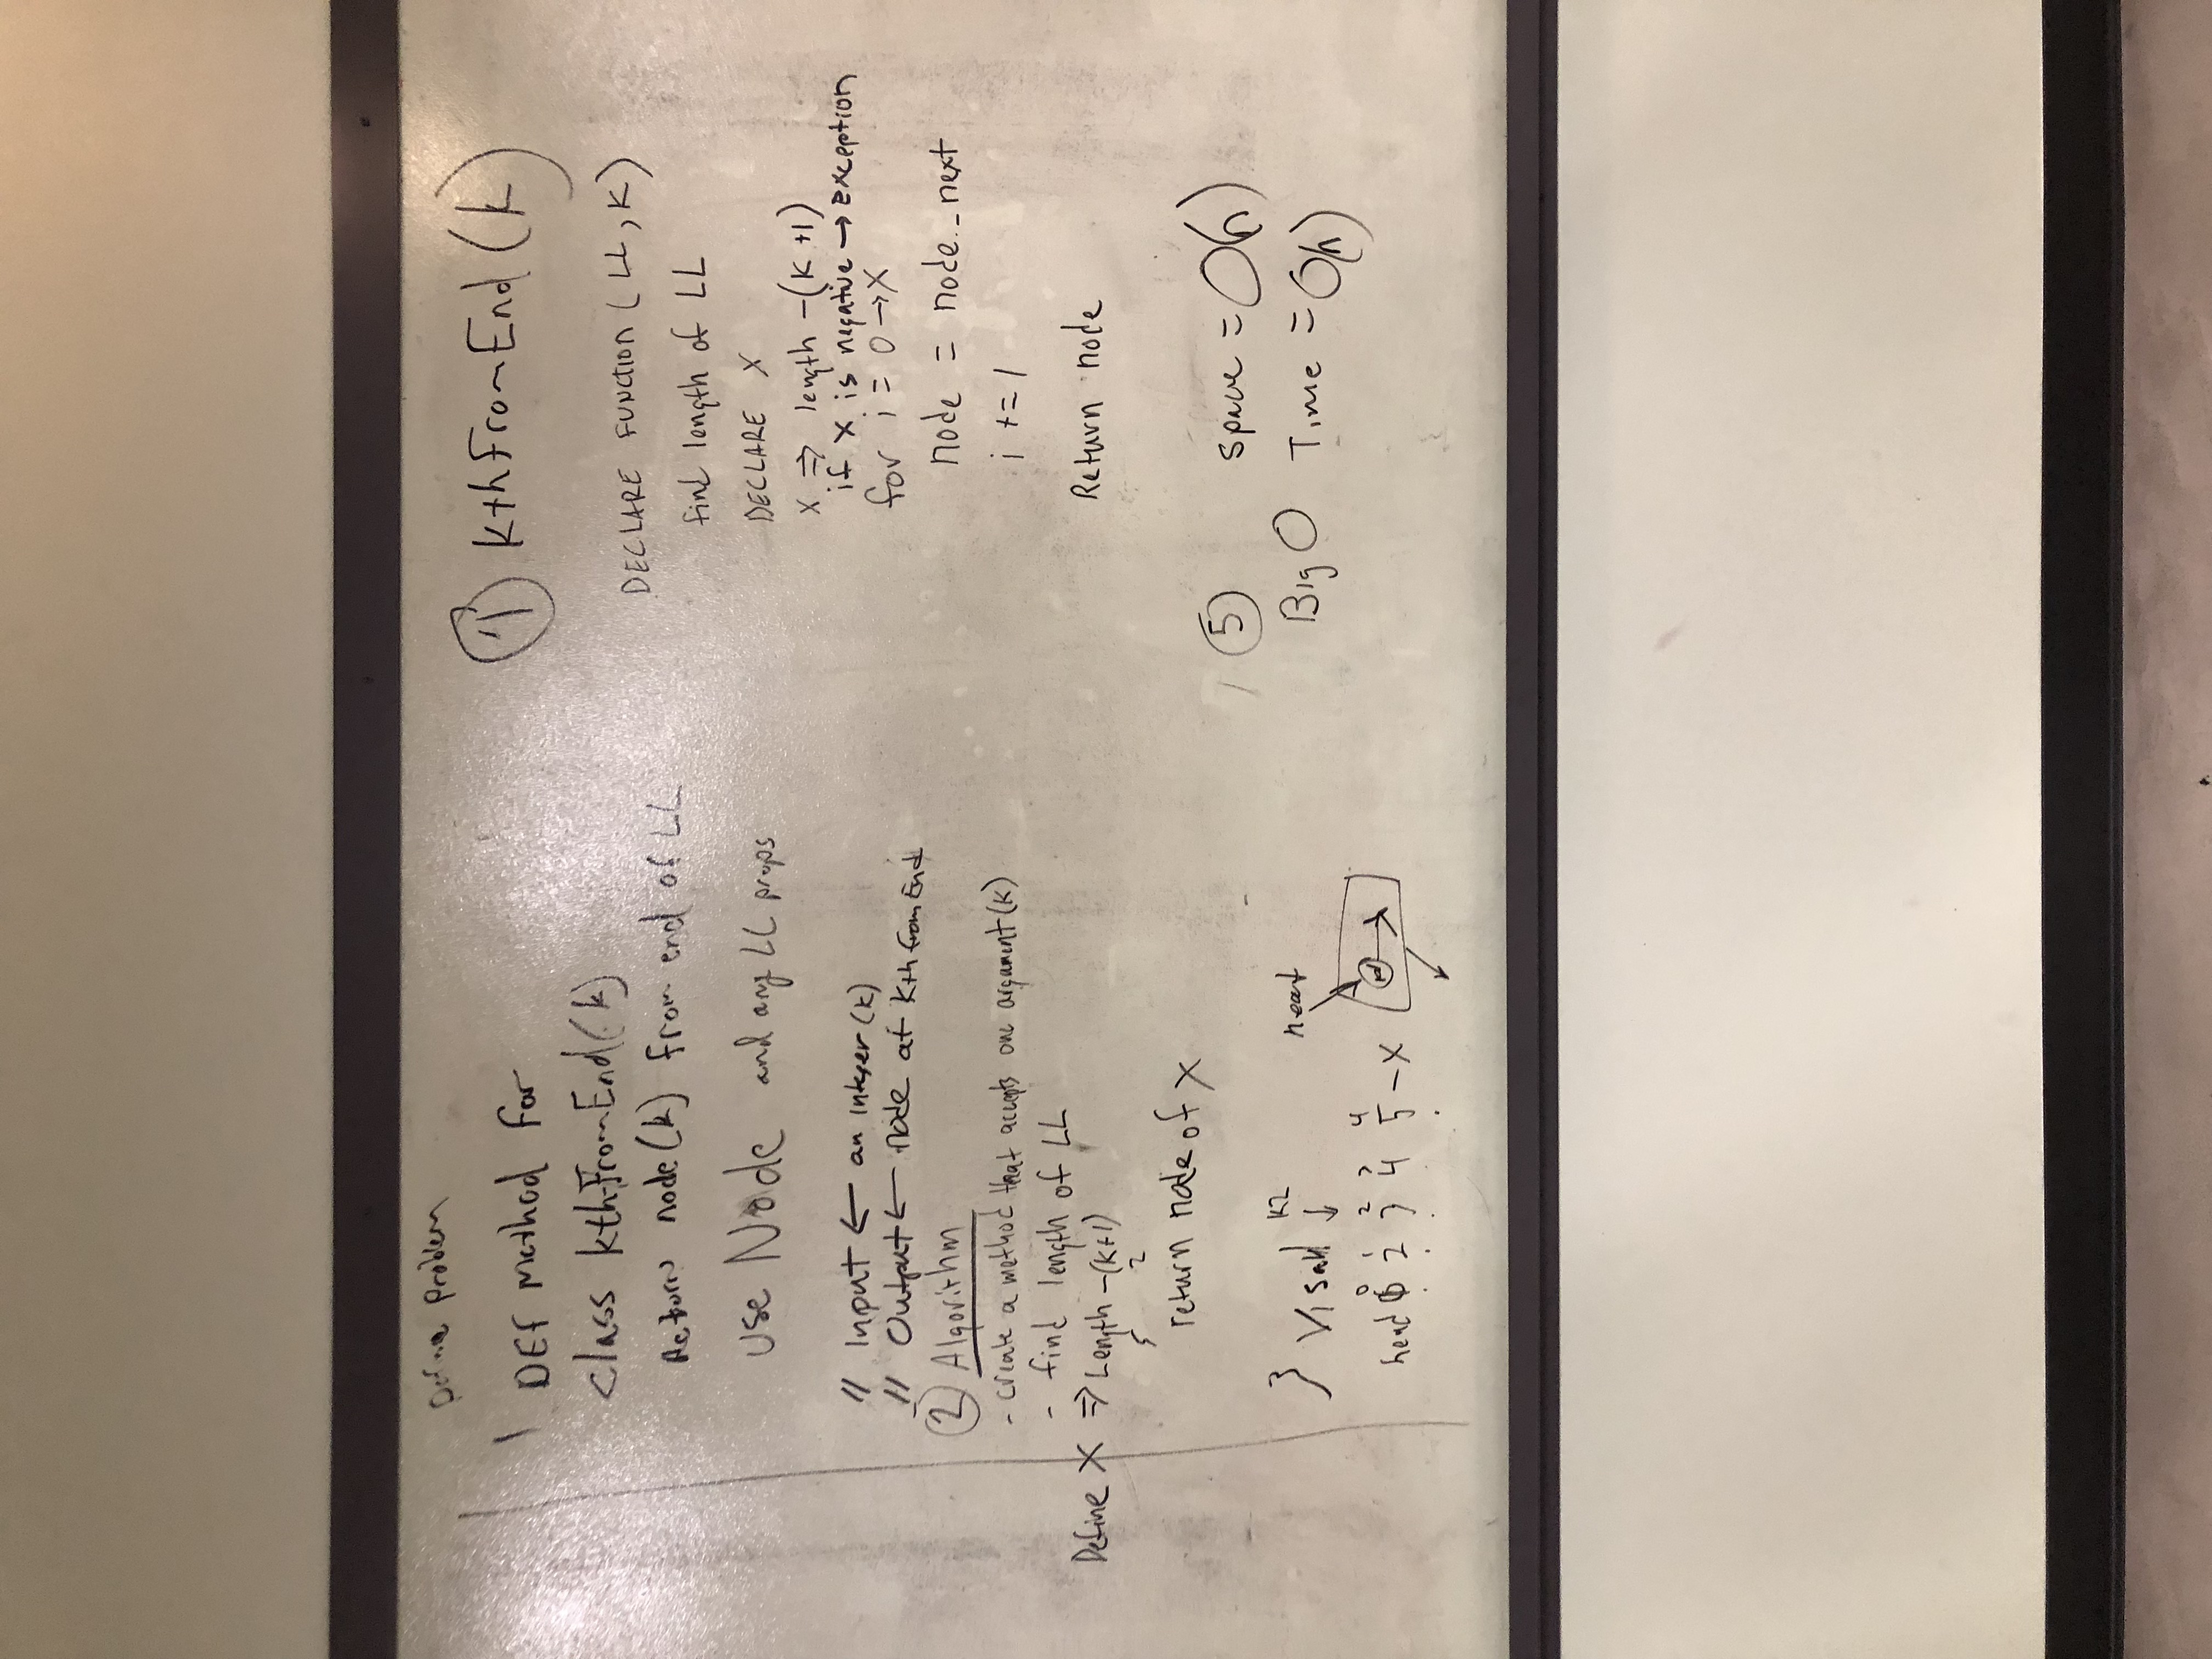 Define Problem
1 DEF Method for
class kthFromEnd(k)
Return node(k) from end of LL
use Node and any LL props
// Input ← an Integer (k)
// Output ← node at kth from End
② Algorithm
- create a method that accepts one argument (K)
- find length of LL
Define X ⇒ Length -(k+1)
5 2
return node of X
3 Visual K2
↓
0 1 2 3 4
head 1 2 3 4 5 - X
head
④ kthFromEnd(k)
DECLARE FUNCTION (LL, K)
find length of LL
DECLARE X
X ⇒ length -(K+1)
if X is negative → Exception
for i = 0 → X
node = node._next
i += 1
Return node
⑤ Space = O(n)
Big O Time = O(n)